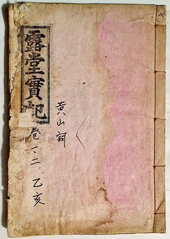 露堂實記
卷一.二 乙亥
黄山詞